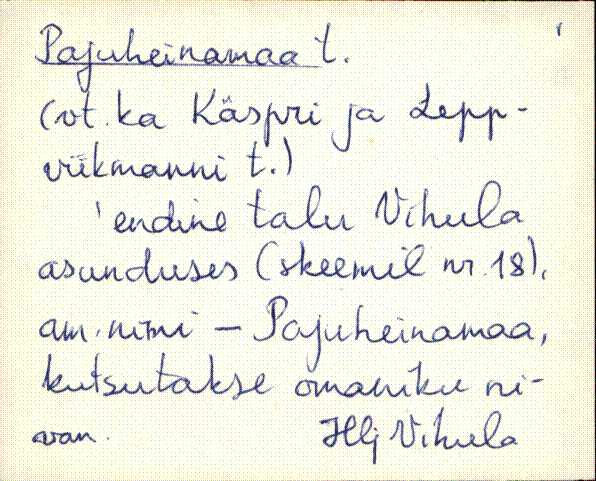 Pajuheinamaa t.
(vt. ka Käspri ja Lepp-
viikmanni t.)
'endine talu Vihula
asunduses (skeemil nr. 18),
am. nimi – Pajuheinamaa,
kutsutakse omaniku ni-
van. Hlj Vihula